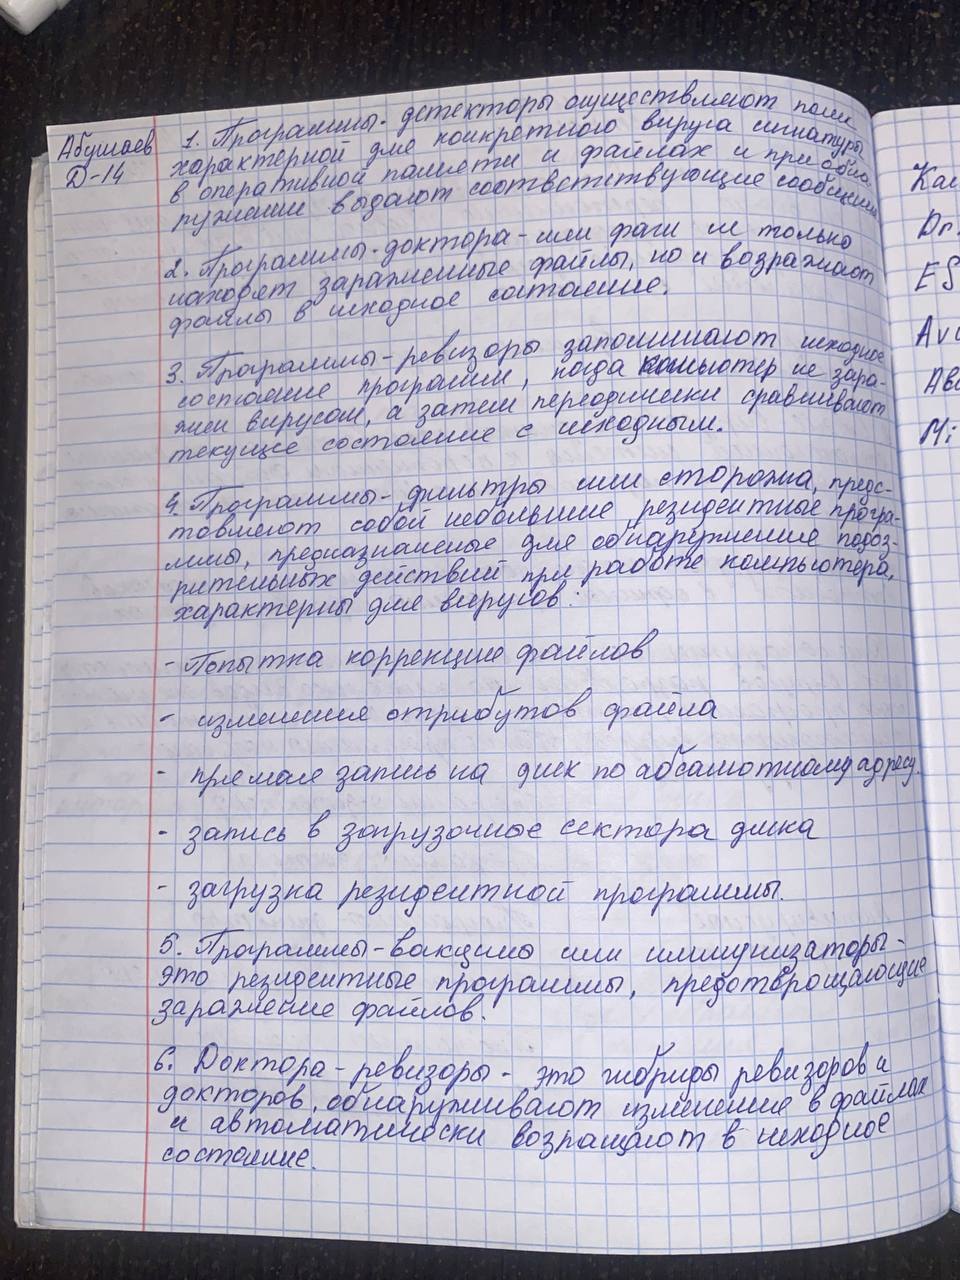 Абушаев
Д-14
1. Программы-детекторы осуществляют поиск
характерной для конкретного вируса сигнатуры
в оперативной памяти и файлах и при обна-
ружении выдают соответствующие сообщения
2. Программы-доктора - или фаги не только
находят зараженные файлы, но и возражают
файлы в исходное состояние.
3. Программы-ревизоры запоминают исходное
состояние программ, когда компьютер не зара-
жен вирусом, а затем переодически сравнивают
текущее состояние с исходным.
4. Программы-фильтры или сторожа, предс-
товляют собой небольшие резидентные програ-
ммы, предназначеные для обнаружение подоз-
рительных действий при работе компьютера,
характерны для вирусов:
- Попытка коррекцие файлов
- изменения отрибутов файла
- прямая запись на диск по абсолютному адресу.
- запись в загрузочные сектора диска
- загрузка резидентной программы.
5. Программы-вакцины или иммунизаторы -
это резидентные программы, предотврощающие
заражение файлов.
6. Доктора-ревизоры - это гибриды ревизоров и
докторов, обнаруживают изменение в файлах
и автоматически возращают в исходное
состояние.
Dr.
ES
Ava
Mi